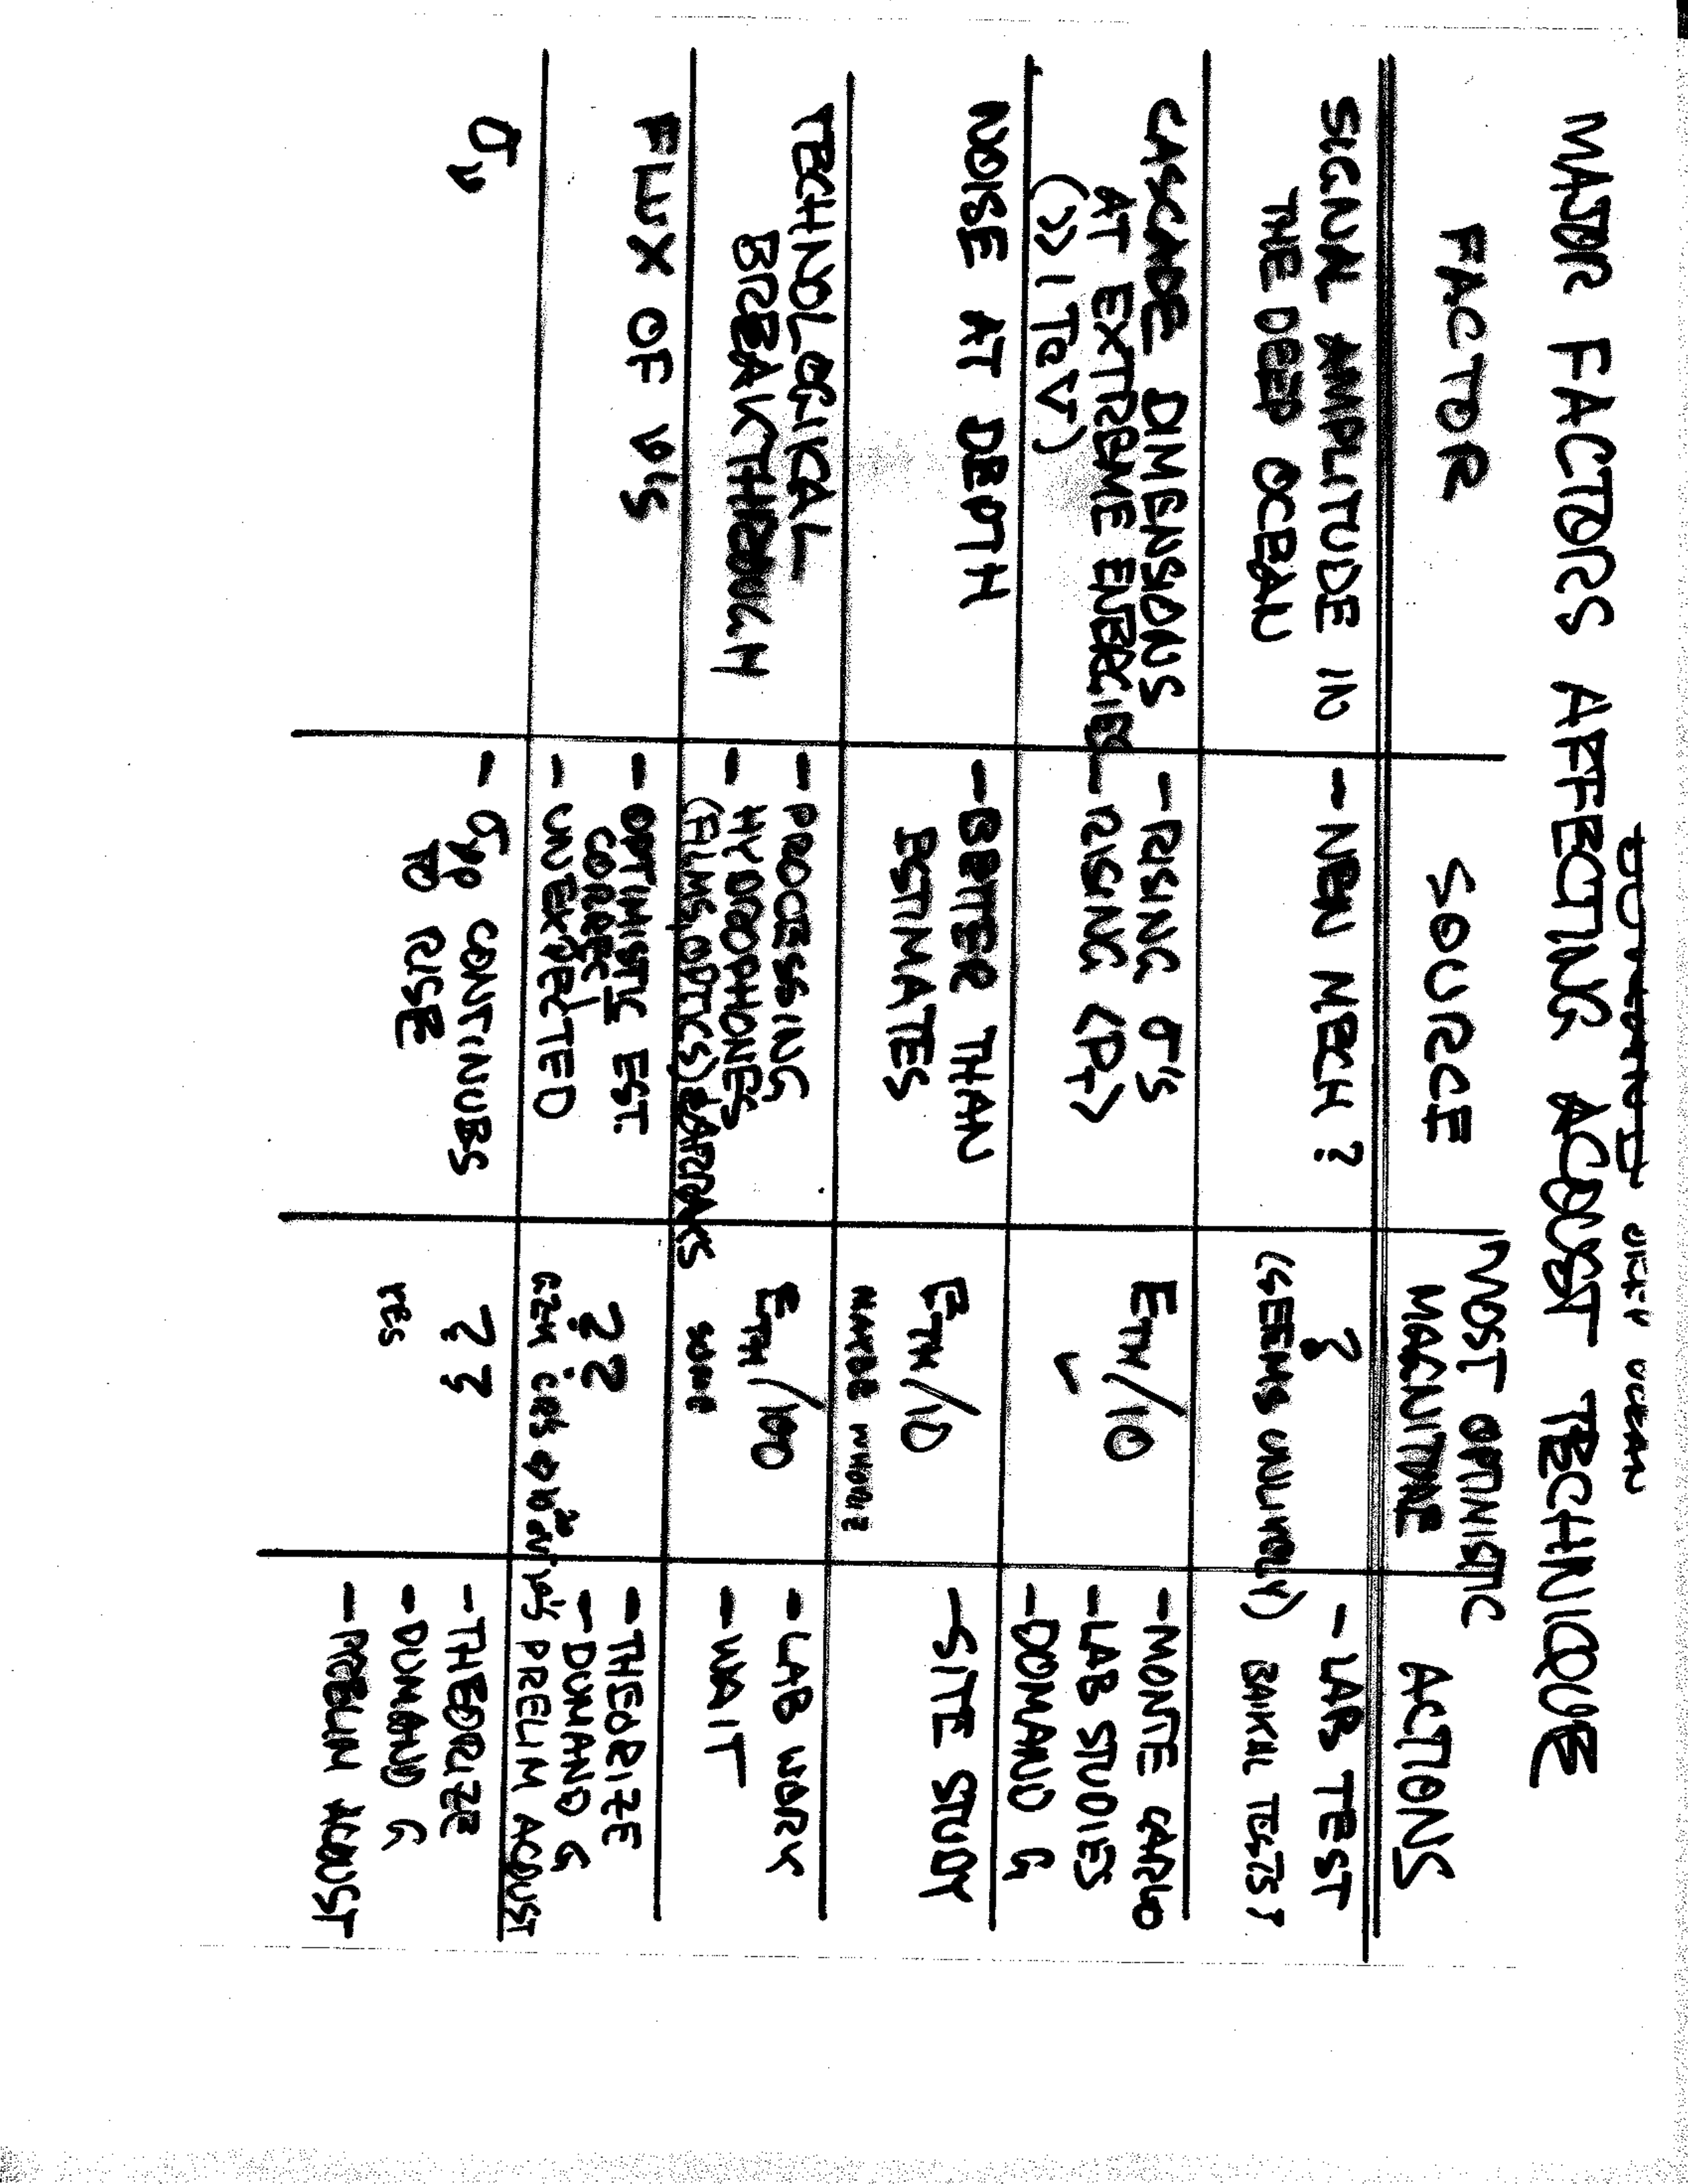 DEEP OCEAN
MAJOR FACTORS AFFECTING ACOUST TECHNIQUE
FACTOR
SOURCE
MOST OPTIMISTIC
MAGNITUDE
ACTIONS
SIGNAL AMPLITUDE IN
THE DEEP OCEAN
- NEW MECH ?
?
(SEEMS UNLIKELY)
- LAB TEST
BAIKAL TESTS ?
CASCADE DIMENSIONS
AT EXTREME ENERGIES
(>> 1 TeV)
- RISING σ's
- RISING <P_T>
E_TH/10
✓
- MONTE CARLO
- LAB STUDIES
- DUMAND G
NOISE AT DEPTH
- BETTER THAN
ESTIMATES
E_TH/10
MAYBE WHORLE
- SITE STUDY
TECHNOLOGICAL
BREAKTHROUGH
- PROCESSING
- HYDROPHONES
(FILMS, OPTICS)
E_TH/100
SOME
- LAB WORK
- WAIT
FLUX OF ν'S
- OPTIMISTIC EST.
CORRECT
- UNEXPECTED
??
GZK CRS
- THEORIZE
- DUMAND G
PRELIM ACOUST
σ_ν
- σ_νp CONTINUES
TO RISE
??
YES
- THEORIZE
- DUMAND G
- PRELIM ACOUST